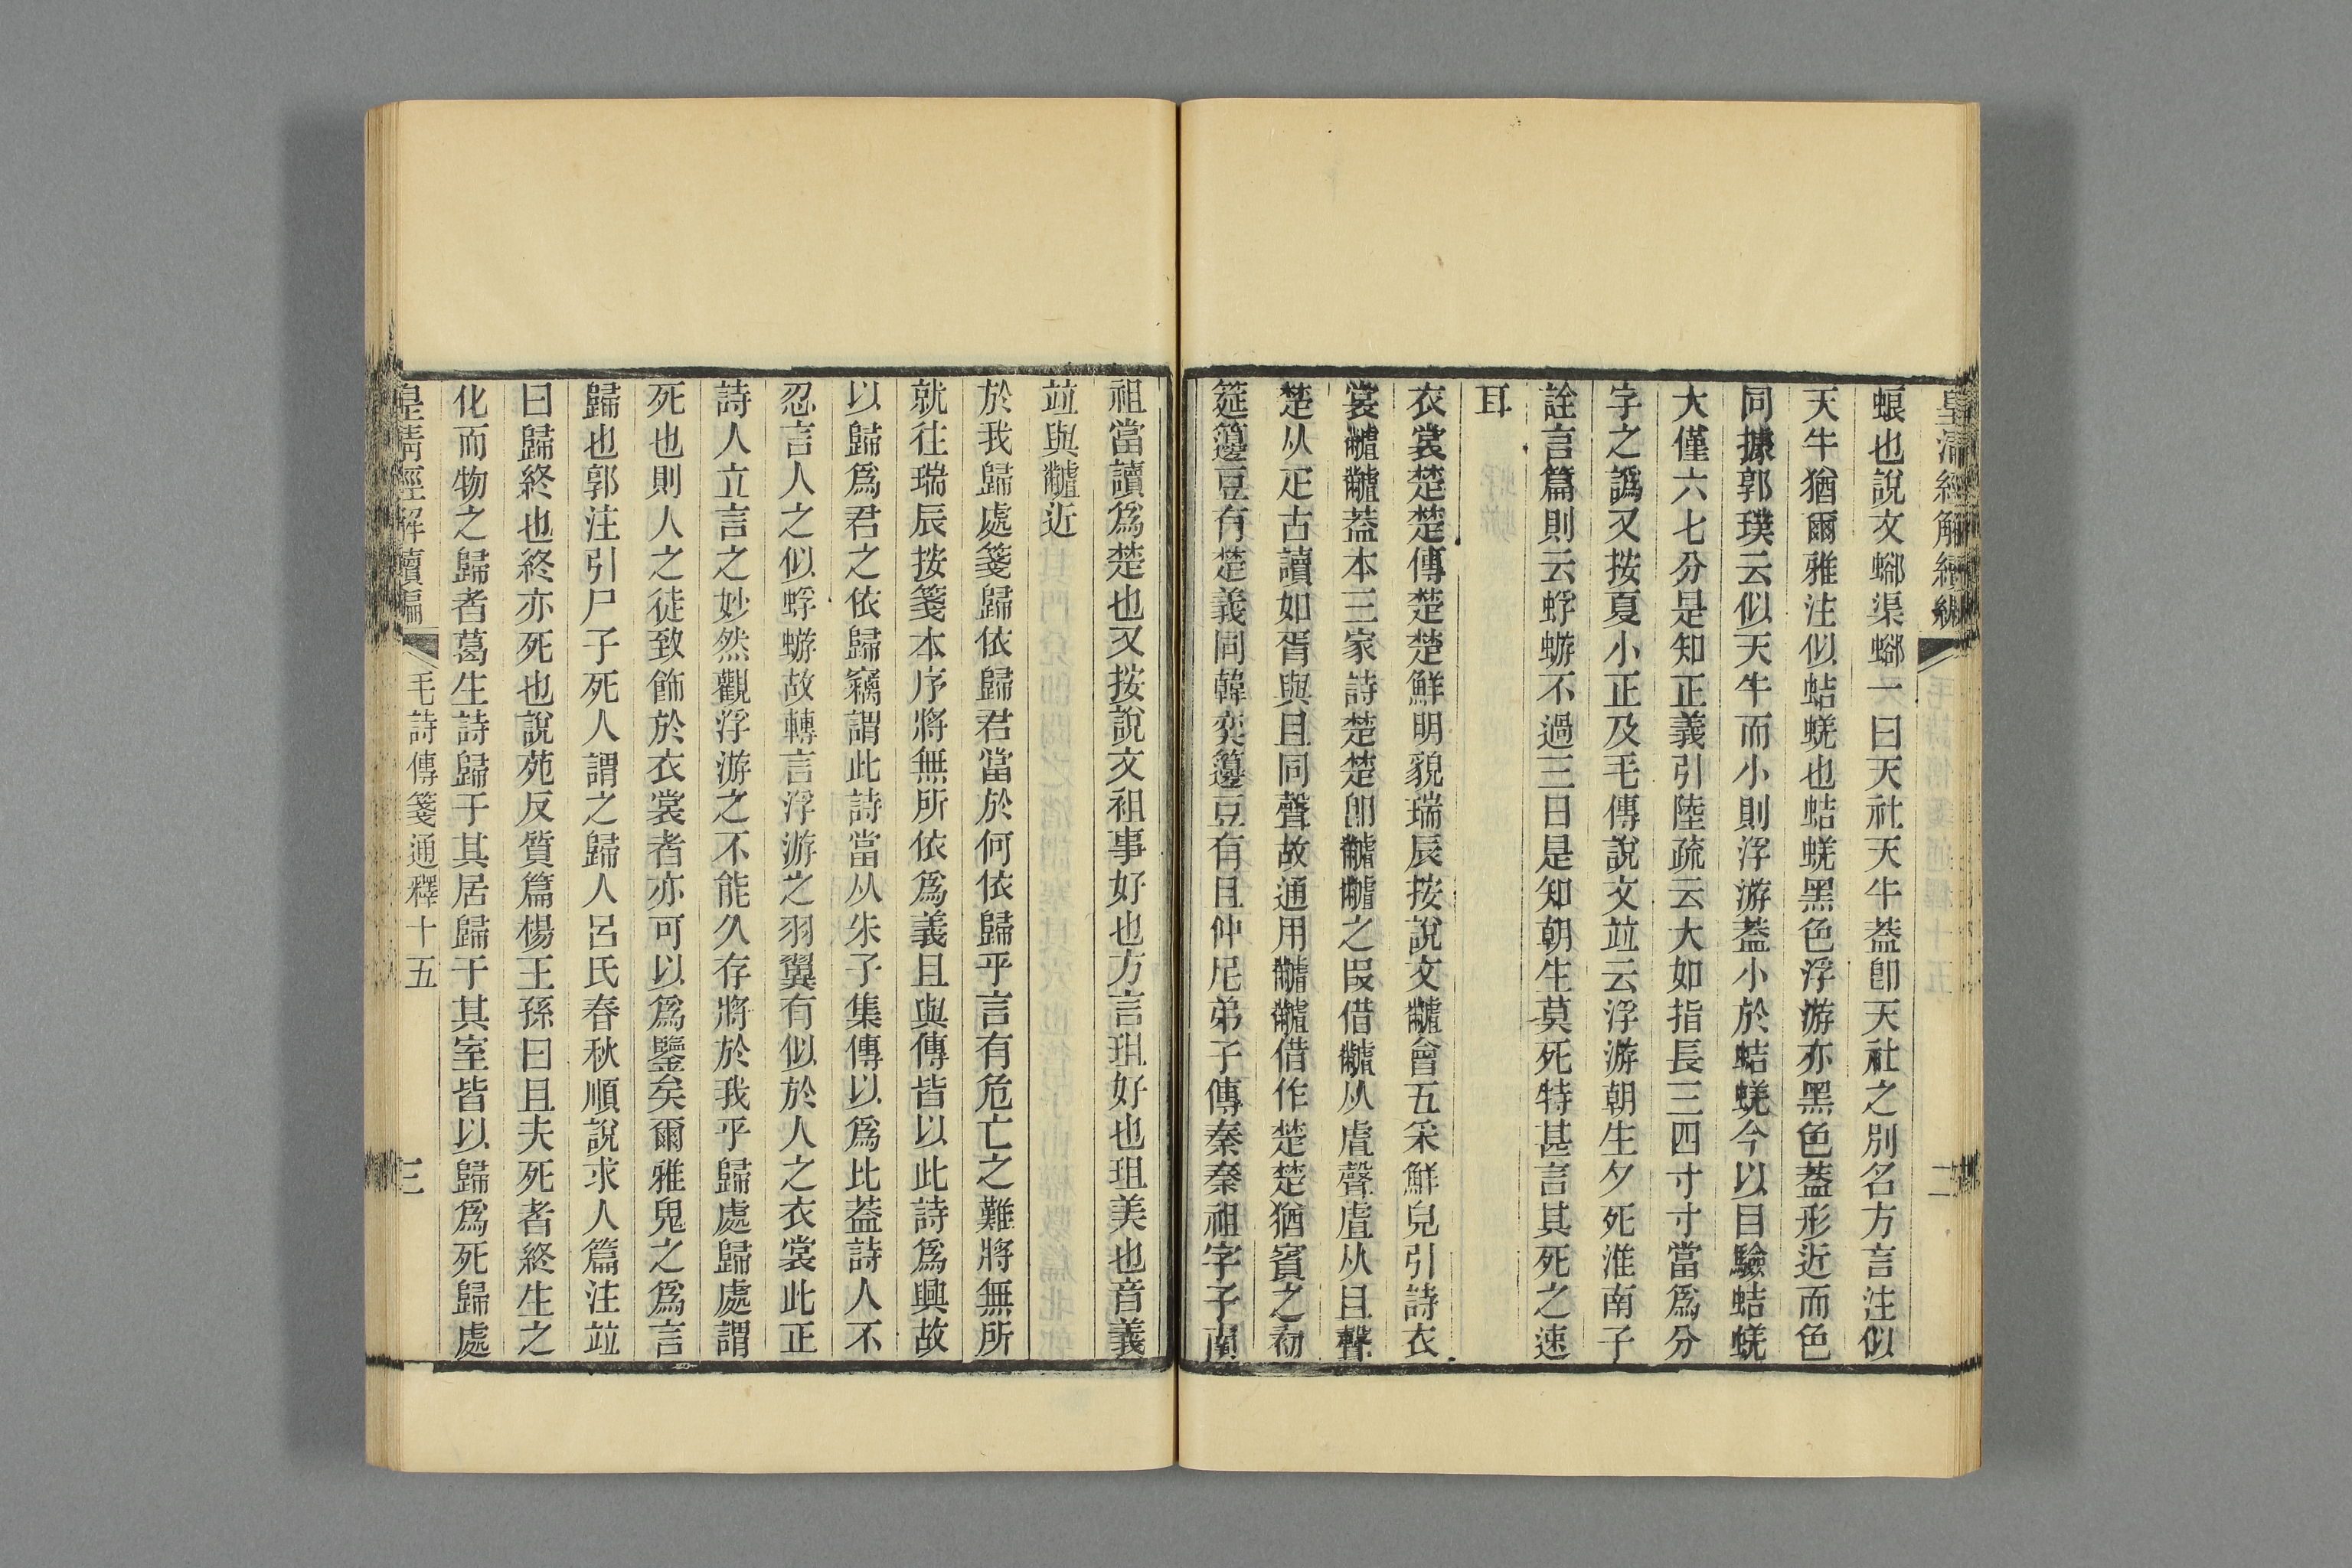 皇清經解續編
二
蜋也說文𧎾渠𧎾一曰天社天牛葢卽天社之別名方言注似
天牛猶爾雅注似蛣蜣也蛣蜣黑色浮游亦黑色葢形近而色
同據郭璞云似天牛而小則浮游葢小於蛣蜣今以目驗蛣蜣
大僅六七分是知正義引陸疏云大如指長三四寸寸當爲分
字之譌又按夏小正及毛傳說文竝云浮游朝生夕死淮南子
詮言篇則云蜉蝣不過三日是知朝生莫死特甚言其死之速
耳
衣裳楚楚傳楚楚鮮明貌瑞辰按說文𪓐會五采鮮皃引詩衣
裳𪓐𪓐葢本三家詩楚楚卽𪓐𪓐之叚借𪓐从虘聲虘从且聲
楚从疋古讀如胥與且同聲故通用𪓐𪓐借作楚楚猶賓之初
筵籩豆有楚義同韓奕籩豆有且仲尼弟子傳秦秦祖字子南
祖當讀爲楚也又按說文袓事好也方言珇好也珇美也音義
竝與𪓐近
於我歸處箋歸依歸君當於何依歸乎言有危亡之難將無所
就往瑞辰按箋本序將無所依爲義且與傳皆以此詩爲興故
以歸爲君之依歸竊謂此詩當从朱子集傳以爲比葢詩人不
忍言人之似蜉蝣故轉言浮游之羽翼有似於人之衣裳此正
詩人立言之妙然觀浮游之不能久存將於我乎歸處歸處謂
死也則人之徒致飾於衣裳者亦可以爲鑒矣爾雅鬼之爲言
歸也郭注引尸子死人謂之歸人呂氏春秋順說求人篇注竝
曰歸終也終亦死也說苑反質篇楊王孫曰且夫死者終生之
化而物之歸者葛生詩歸于其居歸于其室皆以歸爲死歸處
皇清經解續編
毛詩傳箋通釋十五
三